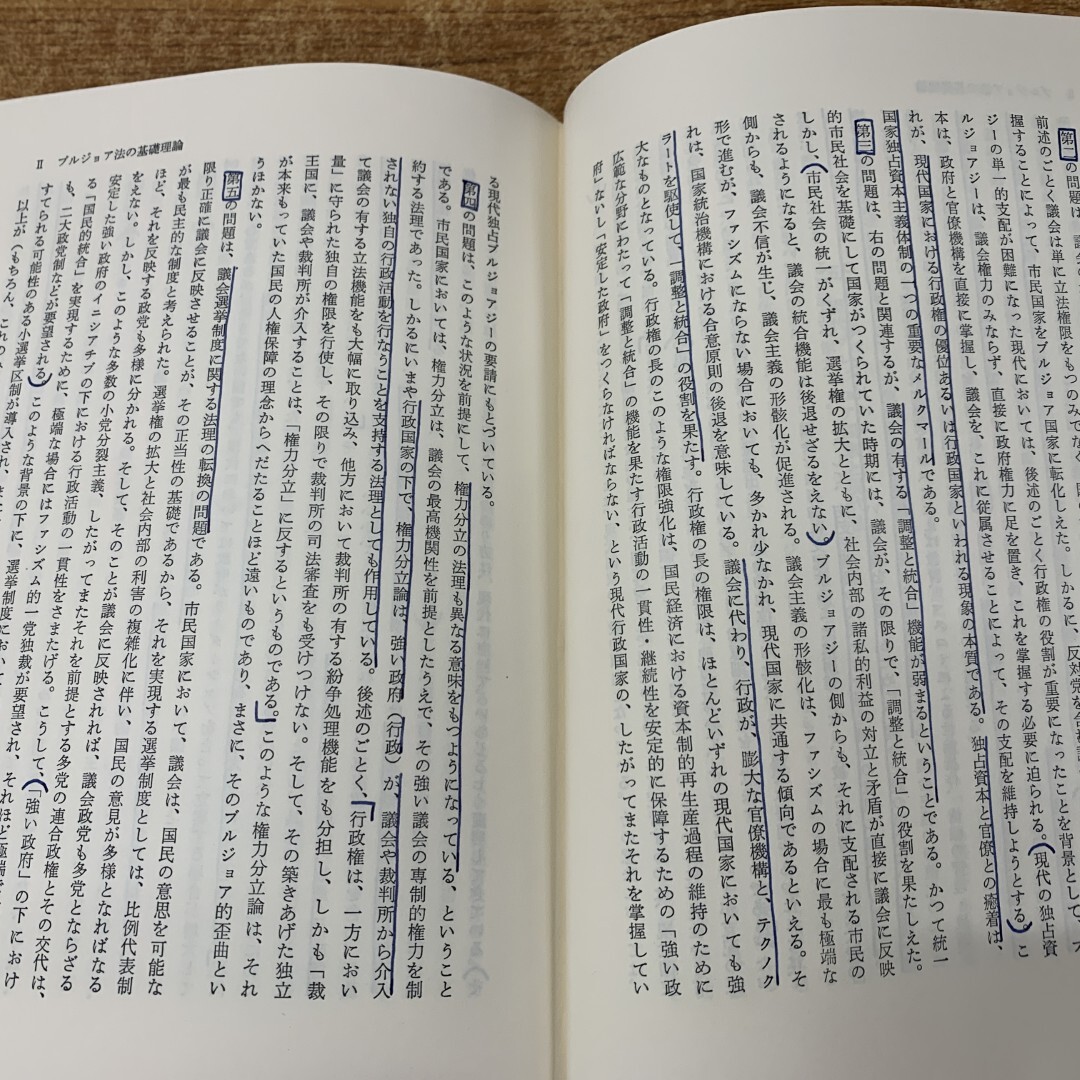 第二の問題は
前述のごとく議会は単に立法権限のみならず、
握することによって、市民国家をブルジョア国家に転化しえた。しかるに、反対党を
ジーの単一的支配が困難になった現代においては、後述のごとく行政権の役割が重要になったことを背景として
ルジョアジーは、議会権力のみならず、直接に政府権力に足を置き、これを掌握する必要に迫られる。(現代の独占資
本は、政府と官僚機構を直接に掌握し、議会を、これに従属させることによって、その支配を維持しようとする。)こ
れが、現代国家における行政権の優位あるいは行政国家といわれる現象の本質である。独占資本と官僚との癒着は、
国家独占資本主義体制の一つの重要なメルクマールである。
第三の問題は、右の問題と関連するが、議会の有する「調整と統合」機能が弱まるということである。かつて統一
的市民社会を基礎にして国家がつくられていた時期には、議会が、その限りで、「調整と統合」の役割を果たしえた。
しかし、(市民社会の統一がくずれ、選挙権の拡大とともに、社会内部の諸私的利益の対立と矛盾が直接に議会に反映
されるようになると、議会の統合機能は後退せざるをえない。)ブルジョアジーの側からも、それに支配される市民の
側からも、議会不信が生じ、議会主義の形骸化が促進される。議会主義の形骸化は、ファシズムの場合に最も極端な
形で進むが、ファシズムにならない場合においても、多かれ少なかれ、現代国家に共通する傾向であるといえる。そ
れは、国家統治機構における合意原則の後退を意味している。議会に代わり、行政が、膨大な官僚機構と、テクノク
ラートを駆使して、「調整と統合」の役割を果たす。行政権の長の権限は、ほとんどいずれの現代国家においても強
大なものとなっている。行政権の長のこのような権限強化は、国民経済における資本制的再生産過程の維持のために
広範な分野にわたって「調整と統合」の機能を果たす行政活動の一貫性・継続性を安定的に保障するための「強い政
府」ないし「安定した政府」をつくらなければならない、という現代行政国家の、したがってまたそれを掌握してい
Ⅱ ブルジョア法の基礎理論
る現代独占ブルジョアジーの要請にもとづいている。
第四の問題は、このような状況を前提にして、権力分立の法理も異なる意味をもつようになっている、ということ
である。市民国家においては、権力分立は、議会の最高機関性を前提としたうえで、その強い議会の専制的権力を制
約する法理であった。しかるにいまや行政国家の下で、権力分立論は、強い政府(行政)が、議会や裁判所から介入
されない独自の行政活動を行なうことを支持する法理としても作用している。後述のごとく、「行政権は、一方におい
て議会の有する立法機能をも大幅に取り込み、他方において裁判所の有する紛争処理機能をも分担し、しかも「裁
量」に守られた独自の権限を行使し、その限りで裁判所の司法審査をも受けつけない。そして、その築きあげた独立
王国に、議会や裁判所が介入することは、「権力分立」に反するというものである。」このような権力分立論は、それ
が本来もっていた国民の人権保障の理念からへだたることほど遠いものであり、まさに、そのブルジョア的歪曲とい
うほかない。
第五の問題は、議会選挙制度に関する法理の転換の問題である。市民国家において、議会は、国民の意思を可能な
限り正確に議会に反映させることが、その正当性の基礎であるから、それを実現する選挙制度としては、比例代表制
が最も民主的な制度と考えられた。選挙権の拡大と社会内部の利害の複雑化に伴い、国民の意見が多様となればなる
ほど、それを反映する政党も多様に分かれる。そして、そのことが議会に反映されれば、議会政党も多党とならざる
をえない。しかし、このような多数の小党分裂主義、したがってまたそれを前提とする多党の連合政権とその交代は、
安定した強い政府のイニシアチブの下における行政活動の一貫性をさまたげる。こうして、(「強い政府」の下におけ
る「国民的統合」を実現するために、極端な場合にはファシズム的一党独裁が要望され、それほど極端で
も、二大政党制などが要望される。)このような背景の下に、選挙制度において
すてられる可能性のある小選挙区制が導入され、また
以上が(もちろん、これのみ